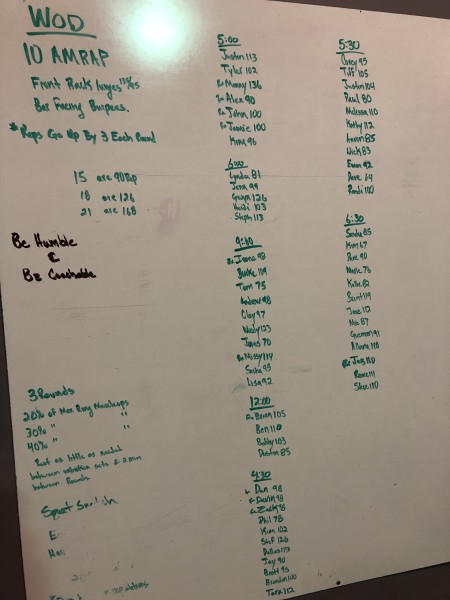 WOD
10 AMRAP
Front Rack lunges 135/95
Bar Facing Burpees.
*Reps Go Up By 3 Each Round
15 are 90 Rep
18 are 126
21 are 168
Be Humble
&
Be Coachable
3 Rounds
20% of Max Ring Muscleups
30% " "
40% " "
Rest as little as needed
between sets & 2 min
between Rounds
Squat
5:00
Justin 113
Tyler 102
Rx Manny 136
Rx Alex 90
Rx John 100
Rx Jamie 100
Kim 96
6:00
Lynda 81
Jenn 99
Gwyn 126
Heidi 103
Steph 113
9:00
98
Burke 119
Tom 75
Andrew 98
Clay 97
Wady 123
James 70
Rx Missy 114
Sasha 95
Lisa 92
12:00
105
Ben 110
Bobby 103
Dustin 85
4:30
Dan 98
Devin 98
Zack
Phil 78
Kim 102
Stef 126
Dallas 173
Jay 90
Brett 95
Brandon 100
Tara 112
5:30
Corey 95
Tiff 105
Justin 104
Paul 80
Melissa 110
Kathy 112
Aaron 85
Nick 83
Evan 92
Dave 64
Randi 110
6:30
Sandra 85
Kim 67
90
76
Katie 82
119
Jose 112
87
German 91
110
Rx Jas 110
111
Steve 110